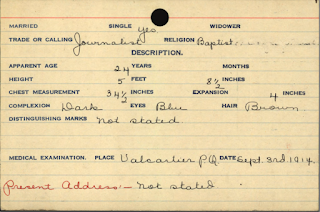 MARRIED SINGLE yes WIDOWER
TRADE OR CALLING Journalist RELIGION Baptist
DESCRIPTION.
APPARENT AGE 24 YEARS MONTHS
HEIGHT 5 FEET 8½ INCHES
CHEST MEASUREMENT 34½ INCHES EXPANSION 4 INCHES
COMPLEXION Dark EYES Blu HAIR Brown
DISTINGUISHING MARKS Not stated.
MEDICAL EXAMINATION. PLACE Valcartier P.Q. DATE Sept. 3rd 1914.
Present Address:- Not stated